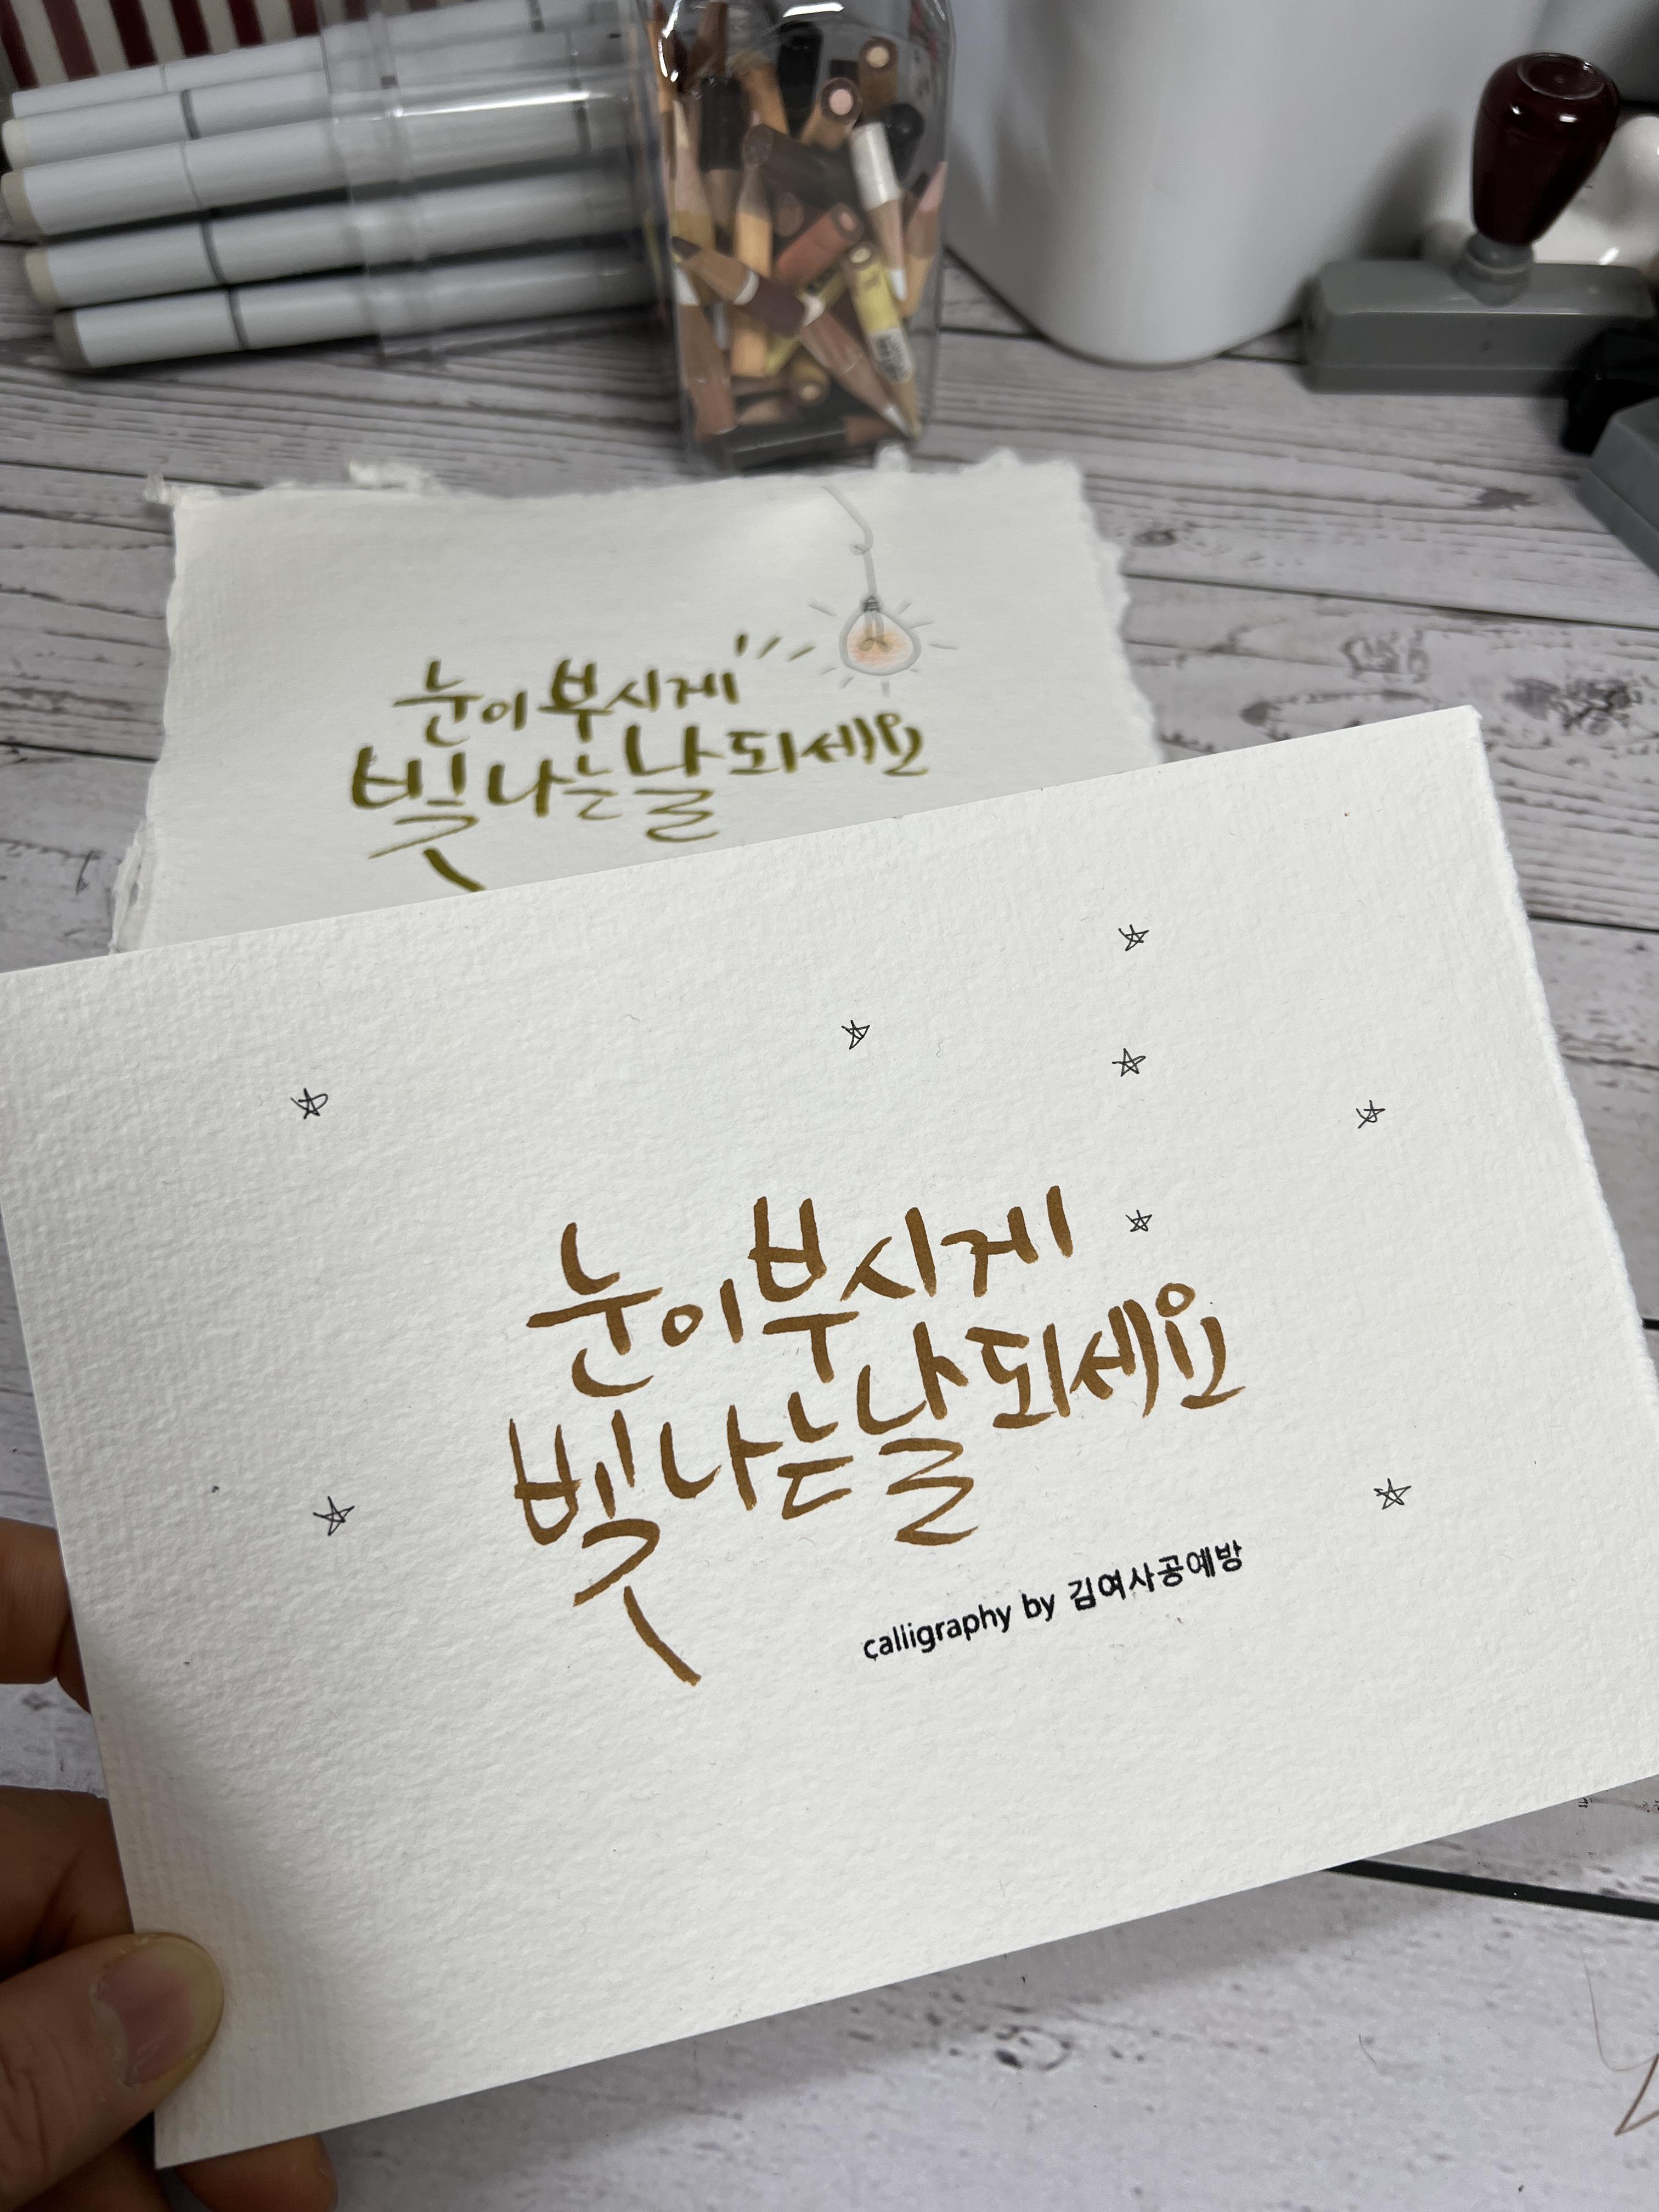 눈이부시게
빛나는날되세요
눈이부시게
빛나는날되세요
calligraphy by 김여사공예방